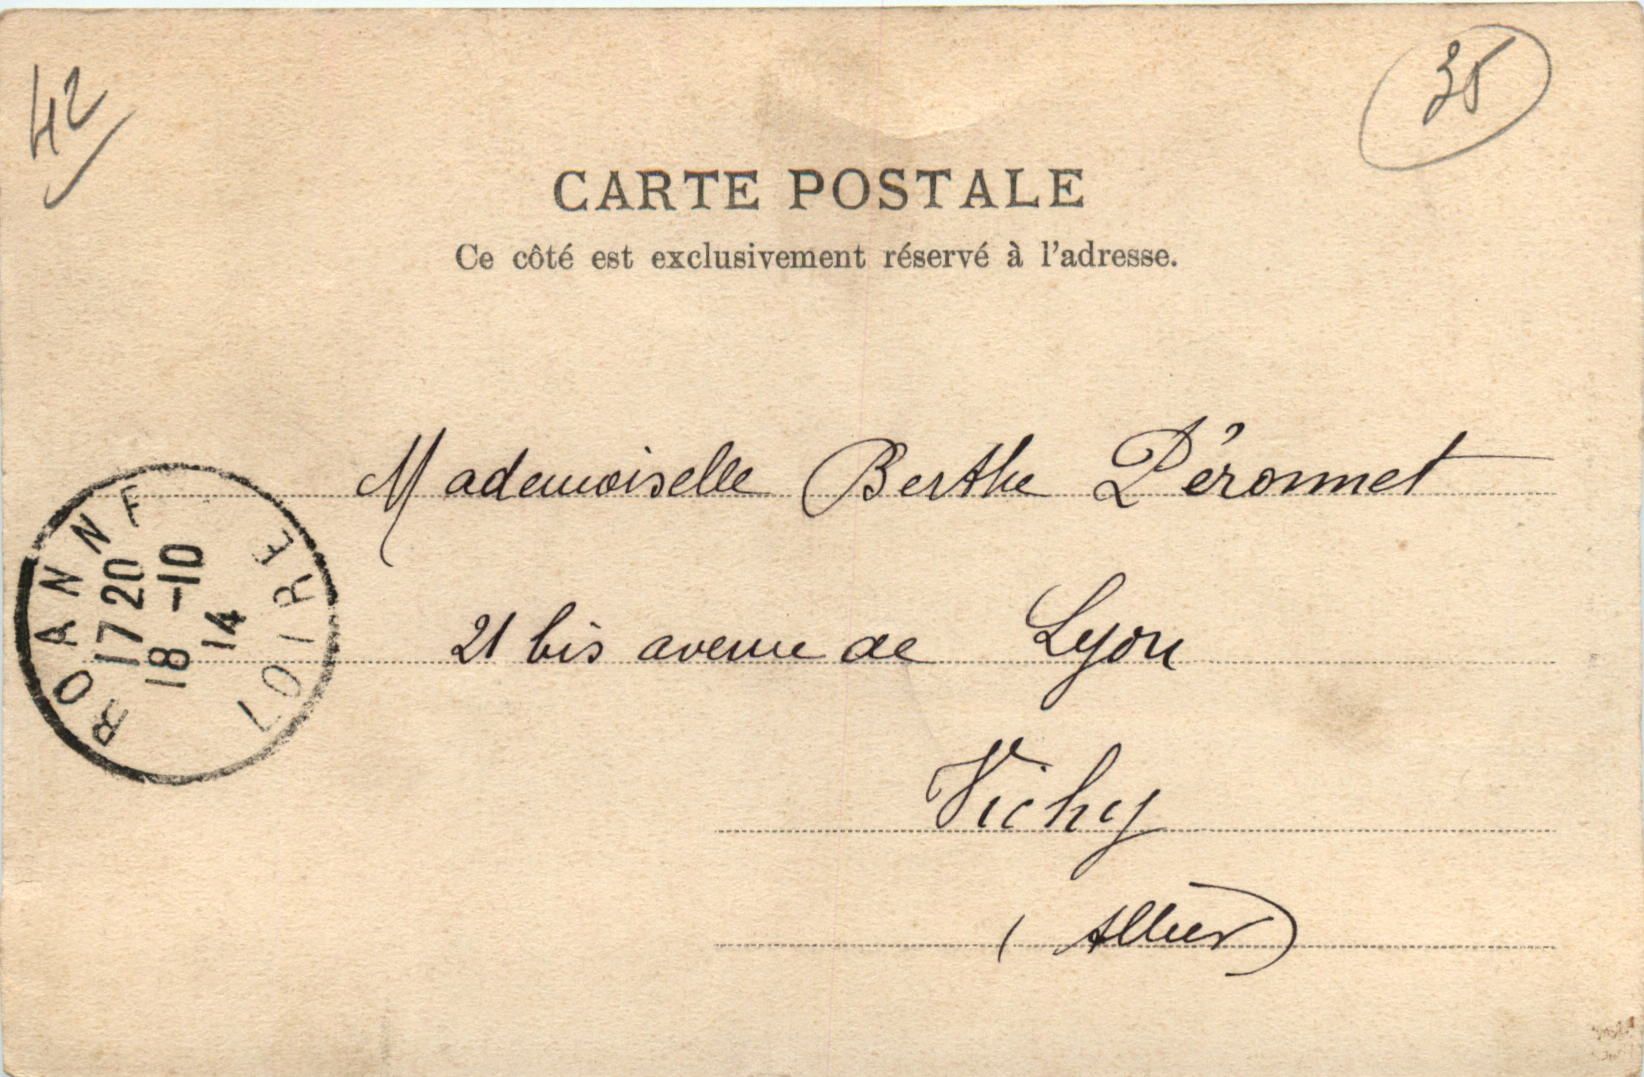 42
35
CARTE POSTALE
Ce côté est exclusivement réservé à l'adresse.
Mademoiselle Berthe Péronnet
21 bis avenue de Lyon
Vichy
(Allier)
ROANNE
17 20
18 -10
14
LOIRE